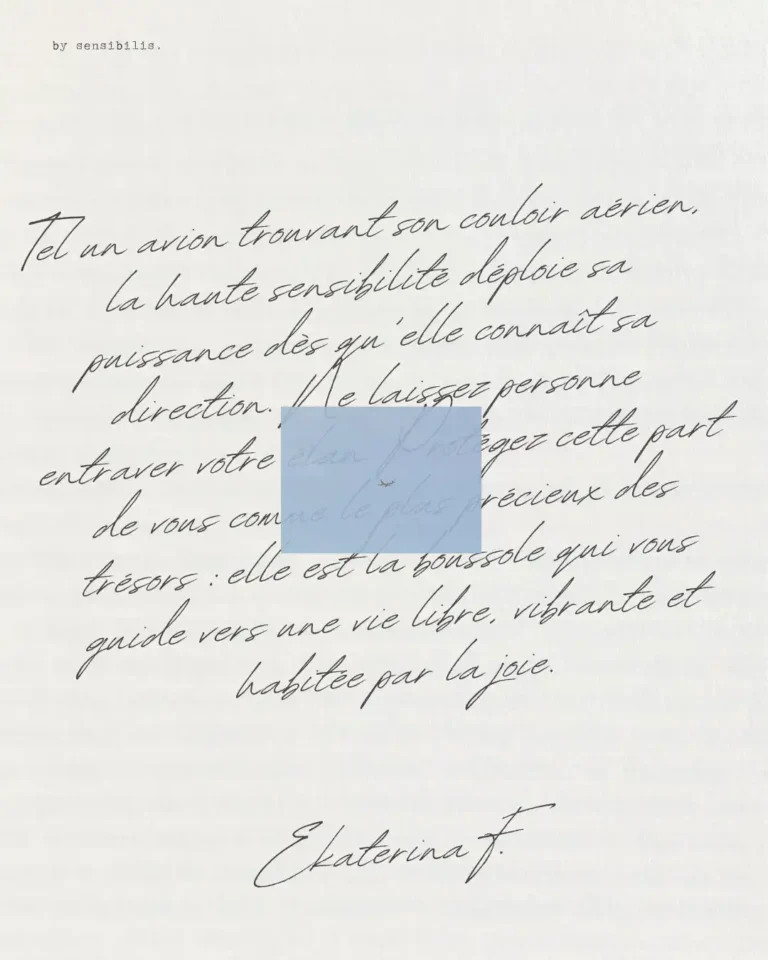 by sensibilis.
Tel un avion trouvant son couloir aérien,
la haute sensibilité déploie sa
puissance dès qu'elle connaît sa
direction. Ne laissez personne
entraver votre élan. Protégez cette part
de vous comme le plus précieux des
trésors : elle est la boussole qui vous
guide vers une vie libre, vibrante et
habitée par la joie.
Ekaterina F.